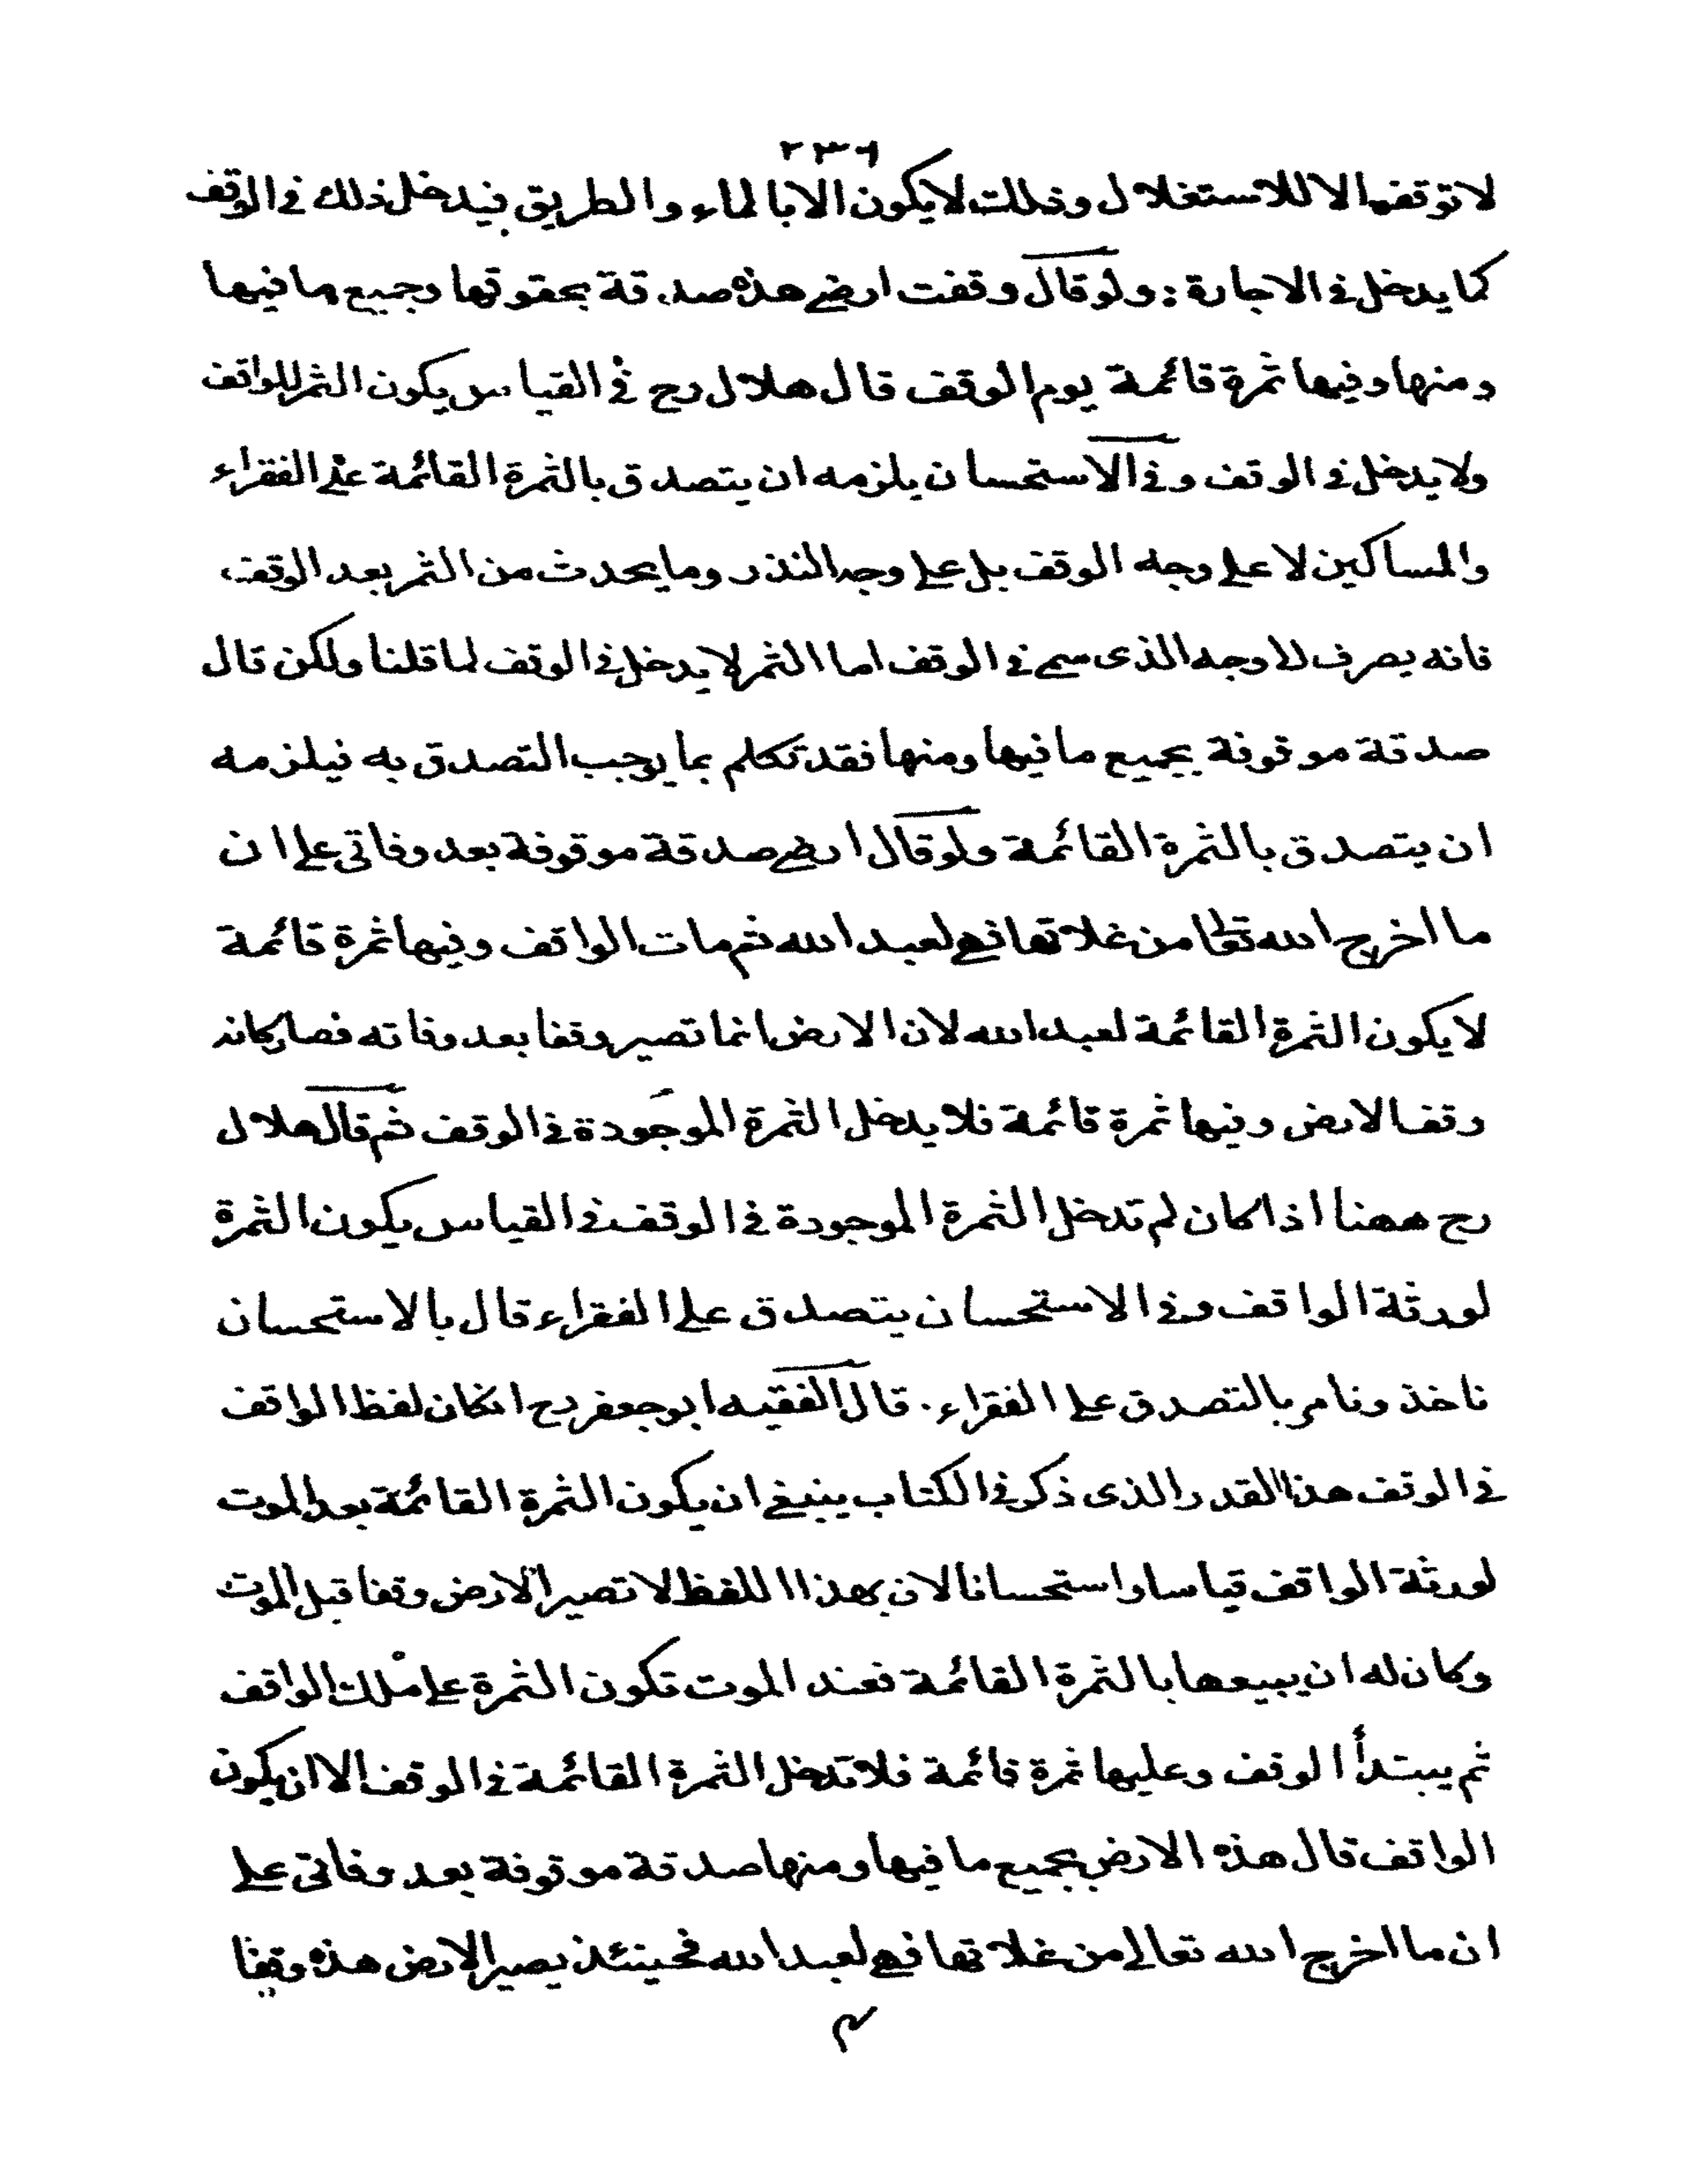 ٢٣٦
لا توقف الا للاستغلال وذلك لا يكون الا بالماء والطريق فيدخل ذلك في الوقف
كما يدخل في الاجارة : ولو قال وقفت ارضي هذه صدقة بحقوقها وجميع ما فيها
ومنها وفيها ثمرة قائمة يوم الوقف قال هلال رح في القياس يكون الثمر للواقف
ولا يدخل في الوقف وفي الاستحسان يلزمه ان يتصدق بالثمرة القائمة على الفقراء
والمساكين لا على وجه الوقف بل على وجه النذر وما يحدث من الثمر بعد الوقف
فانه يصرف للاوجه الذى سمى في الوقف اما الثمر لا يدخل في الوقف لما قلنا ولكن قال
صدقة موقوفة بجميع ما فيها ومنها فقد تكلم بما يوجب التصدق به فيلزمه
ان يتصدق بالثمرة القائمة ولو قال ارضي صدقة موقوفة بعد وفاتى على ان
ما اخرج الله تعا من غلاتها فهي لعبد الله ثم مات الواقف وفيها ثمرة قائمة
لا يكون الثمرة القائمة لعبد الله لان الارض انما تصير وقفا بعد وفاته فصار كانه
وقف الارض وفيها ثمرة قائمة فلا يدخل الثمرة الموجودة في الوقف ثم قال هلال
رح ههنا اذا كان لم تدخل الثمرة الموجودة في الوقف في القياس يكون الثمرة
لورثة الواقف وفي الاستحسان يتصدق على الفقراء قال بالاستحسان
ناخذ ونامر بالتصدق على الفقراء . قال الفقيه ابو جعفر رح انكان لفظ الواقف
في الوقف هذا القدر الذى ذكر في الكتاب ينبغي ان يكون الثمرة القائمة بعد الموت
لورثة الواقف قياسا واستحسانا لان بهذا اللفظ لا تصير الارض وقفا قبل الموت
وكان له ان يبيعها بالثمرة القائمة فعند الموت تكون الثمرة على ملك الواقف
ثم يبتدأ الوقف وعليها ثمرة قائمة فلا تدخل الثمرة القائمة في الوقف الا ان يكون
الواقف قال هذه الارض بجميع ما فيها ومنها صدقة موقوفة بعد وفاتى على
ان ما اخرج الله تعالى من غلاتها فهي لعبد الله فحينئذ يصير الارض هذه وقفا